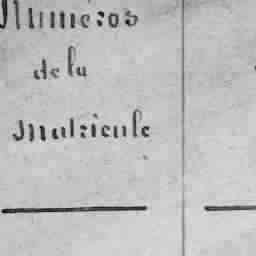 Numéros
de la
Matricule